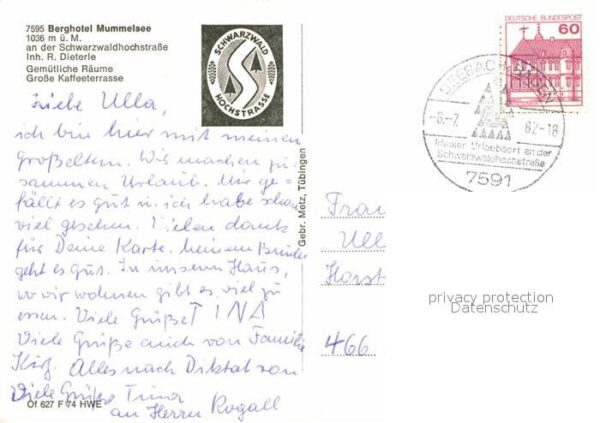 7595 Berghotel Mummelsee
1036 m ü. M.
an der Schwarzwaldhochstraße
Inh. R. Dieterle
Gemütliche Räume
Große Kaffeeterrasse
SCHWARZWALD
HOCHSTRASSE
DEUTSCHE BUNDESPOST
60
SEEBACH BADEN
-6.-7. 82-18
Idealer Urlaubsort an der
Schwarzwaldhochstraße
7591
Liebe Ulla,
ich bin hier mit meinen
Großeltern. Wir machen zu-
sammen Urlaub. Mir ge-
fällt es gut u. ich habe schon
viel gesehen. Vielen Dank
für Deine Karte. Meinem Bruder
geht es gut. In unserem Haus,
wo wir wohnen gibt es viel zu
essen. Viele Grüße TINA
Viele Grüße auch von Familie
Alles nach Diktat von
Viele Grüße Tina
an Herrn Rogall
Gebr. Metz, Tübingen
Frau
Ull
Horst
466
privacy protection
Datenschutz
Of 627 F 74 HWE